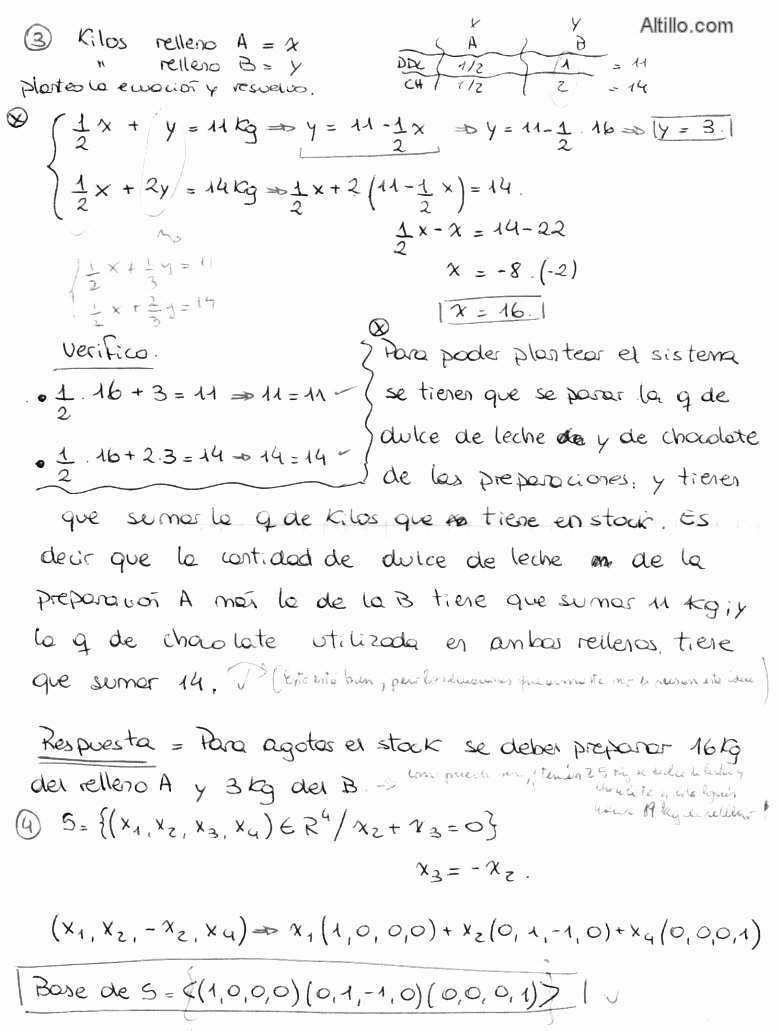 Altillo.com
③ Kilos relleno A = x
" relleno B = y
x y
A B
DDL 1/2 1 = 11
CH 1/2 2 = 14
planteo la ecuación y resuelvo.
ⓧ { 1/2 x + y = 11 Kg ⇒ y = 11 - 1/2 x ⇒ y = 11 - 1/2 . 16 ⇒ y = 3.
1/2 x + 2y = 14 Kg ⇒ 1/2 x + 2 (11 - 1/2 x) = 14.
1/2 x - x = 14 - 22
x = -8 . (-2)
x = 16.
no
{ 1/2 x + 1/3 y = 11
1/2 x + 2/3 y = 14
Verifico.
• 1/2 . 16 + 3 = 11 ⇒ 11 = 11 ✓
• 1/2 . 16 + 2.3 = 14 ⇒ 14 = 14 ✓
ⓧ
Para poder plantear el sistema
se tienen que separar la q de
dulce de leche y de chocolate
de las preparaciones, y tienen
que sumar la q de Kilos que tiene en stock. Es
decir que la cantidad de dulce de leche de la
preparación A más la de la B tiene que sumar 11 Kg; y
la q de chocolate utilizada en ambos rellenos, tiene
que sumar 14. (Esto está bien, pero las ecuaciones que no esta idea)
Respuesta = Para agotar el stock se deben preparar 16 Kg
del relleno A y 3 Kg del B. ⇒ como puede ser, ¿tenían 25 Kg de dulce de leche y
chocolate y
19 kg en relleno?
④ S = {(x1, x2, x3, x4) ∈ R^4 / x2 + x3 = 0}
x3 = -x2.
(x1, x2, -x2, x4) ⇒ x1 (1, 0, 0, 0) + x2 (0, 1, -1, 0) + x4 (0, 0, 0, 1)
Base de S = {<(1,0,0,0) (0,1,-1,0) (0,0,0,1)>}